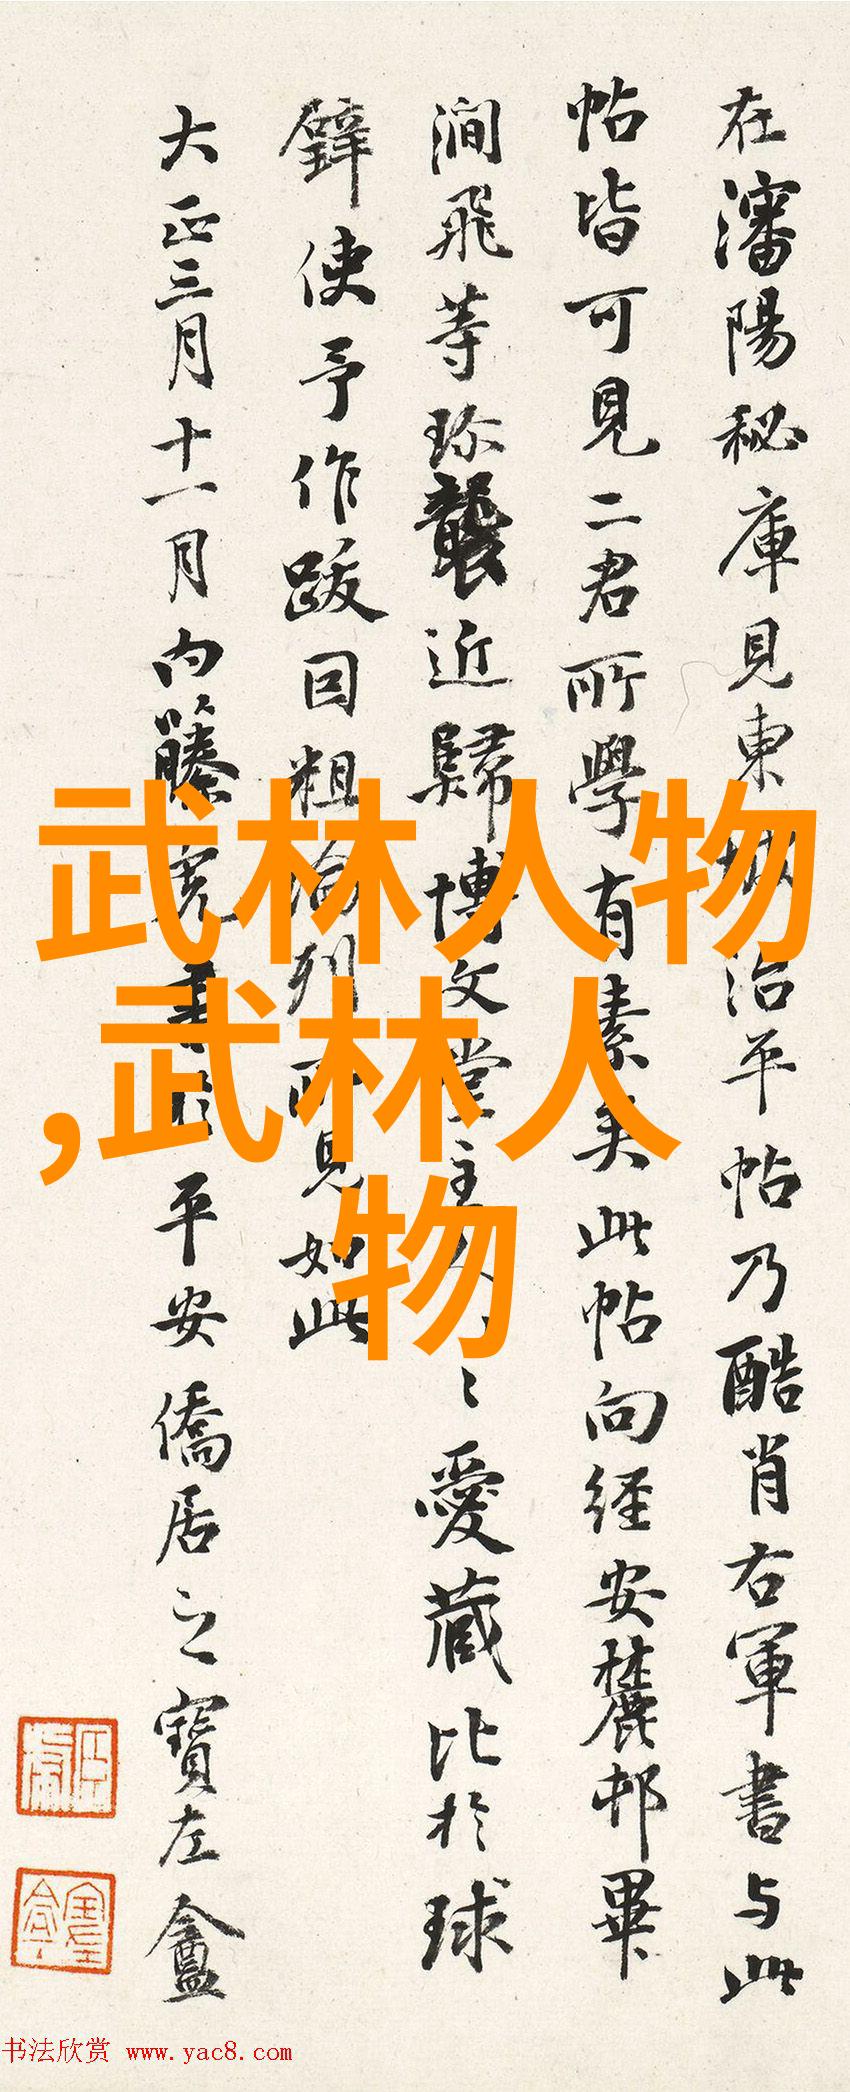 在瀋陽秘庫見東坡治平帖乃酷肖右軍書与此
帖皆可見二君所學有素矣此帖向経安麓邨畢
澗飛等珎襲近歸博文堂主人〻愛蔵比於球
璧使予作跋因粗論列所見如此
大正三月十一月内藤虎書於平安僑居之寶左盦
武林人物
,武林人
物
书法欣赏 www.yac8.com